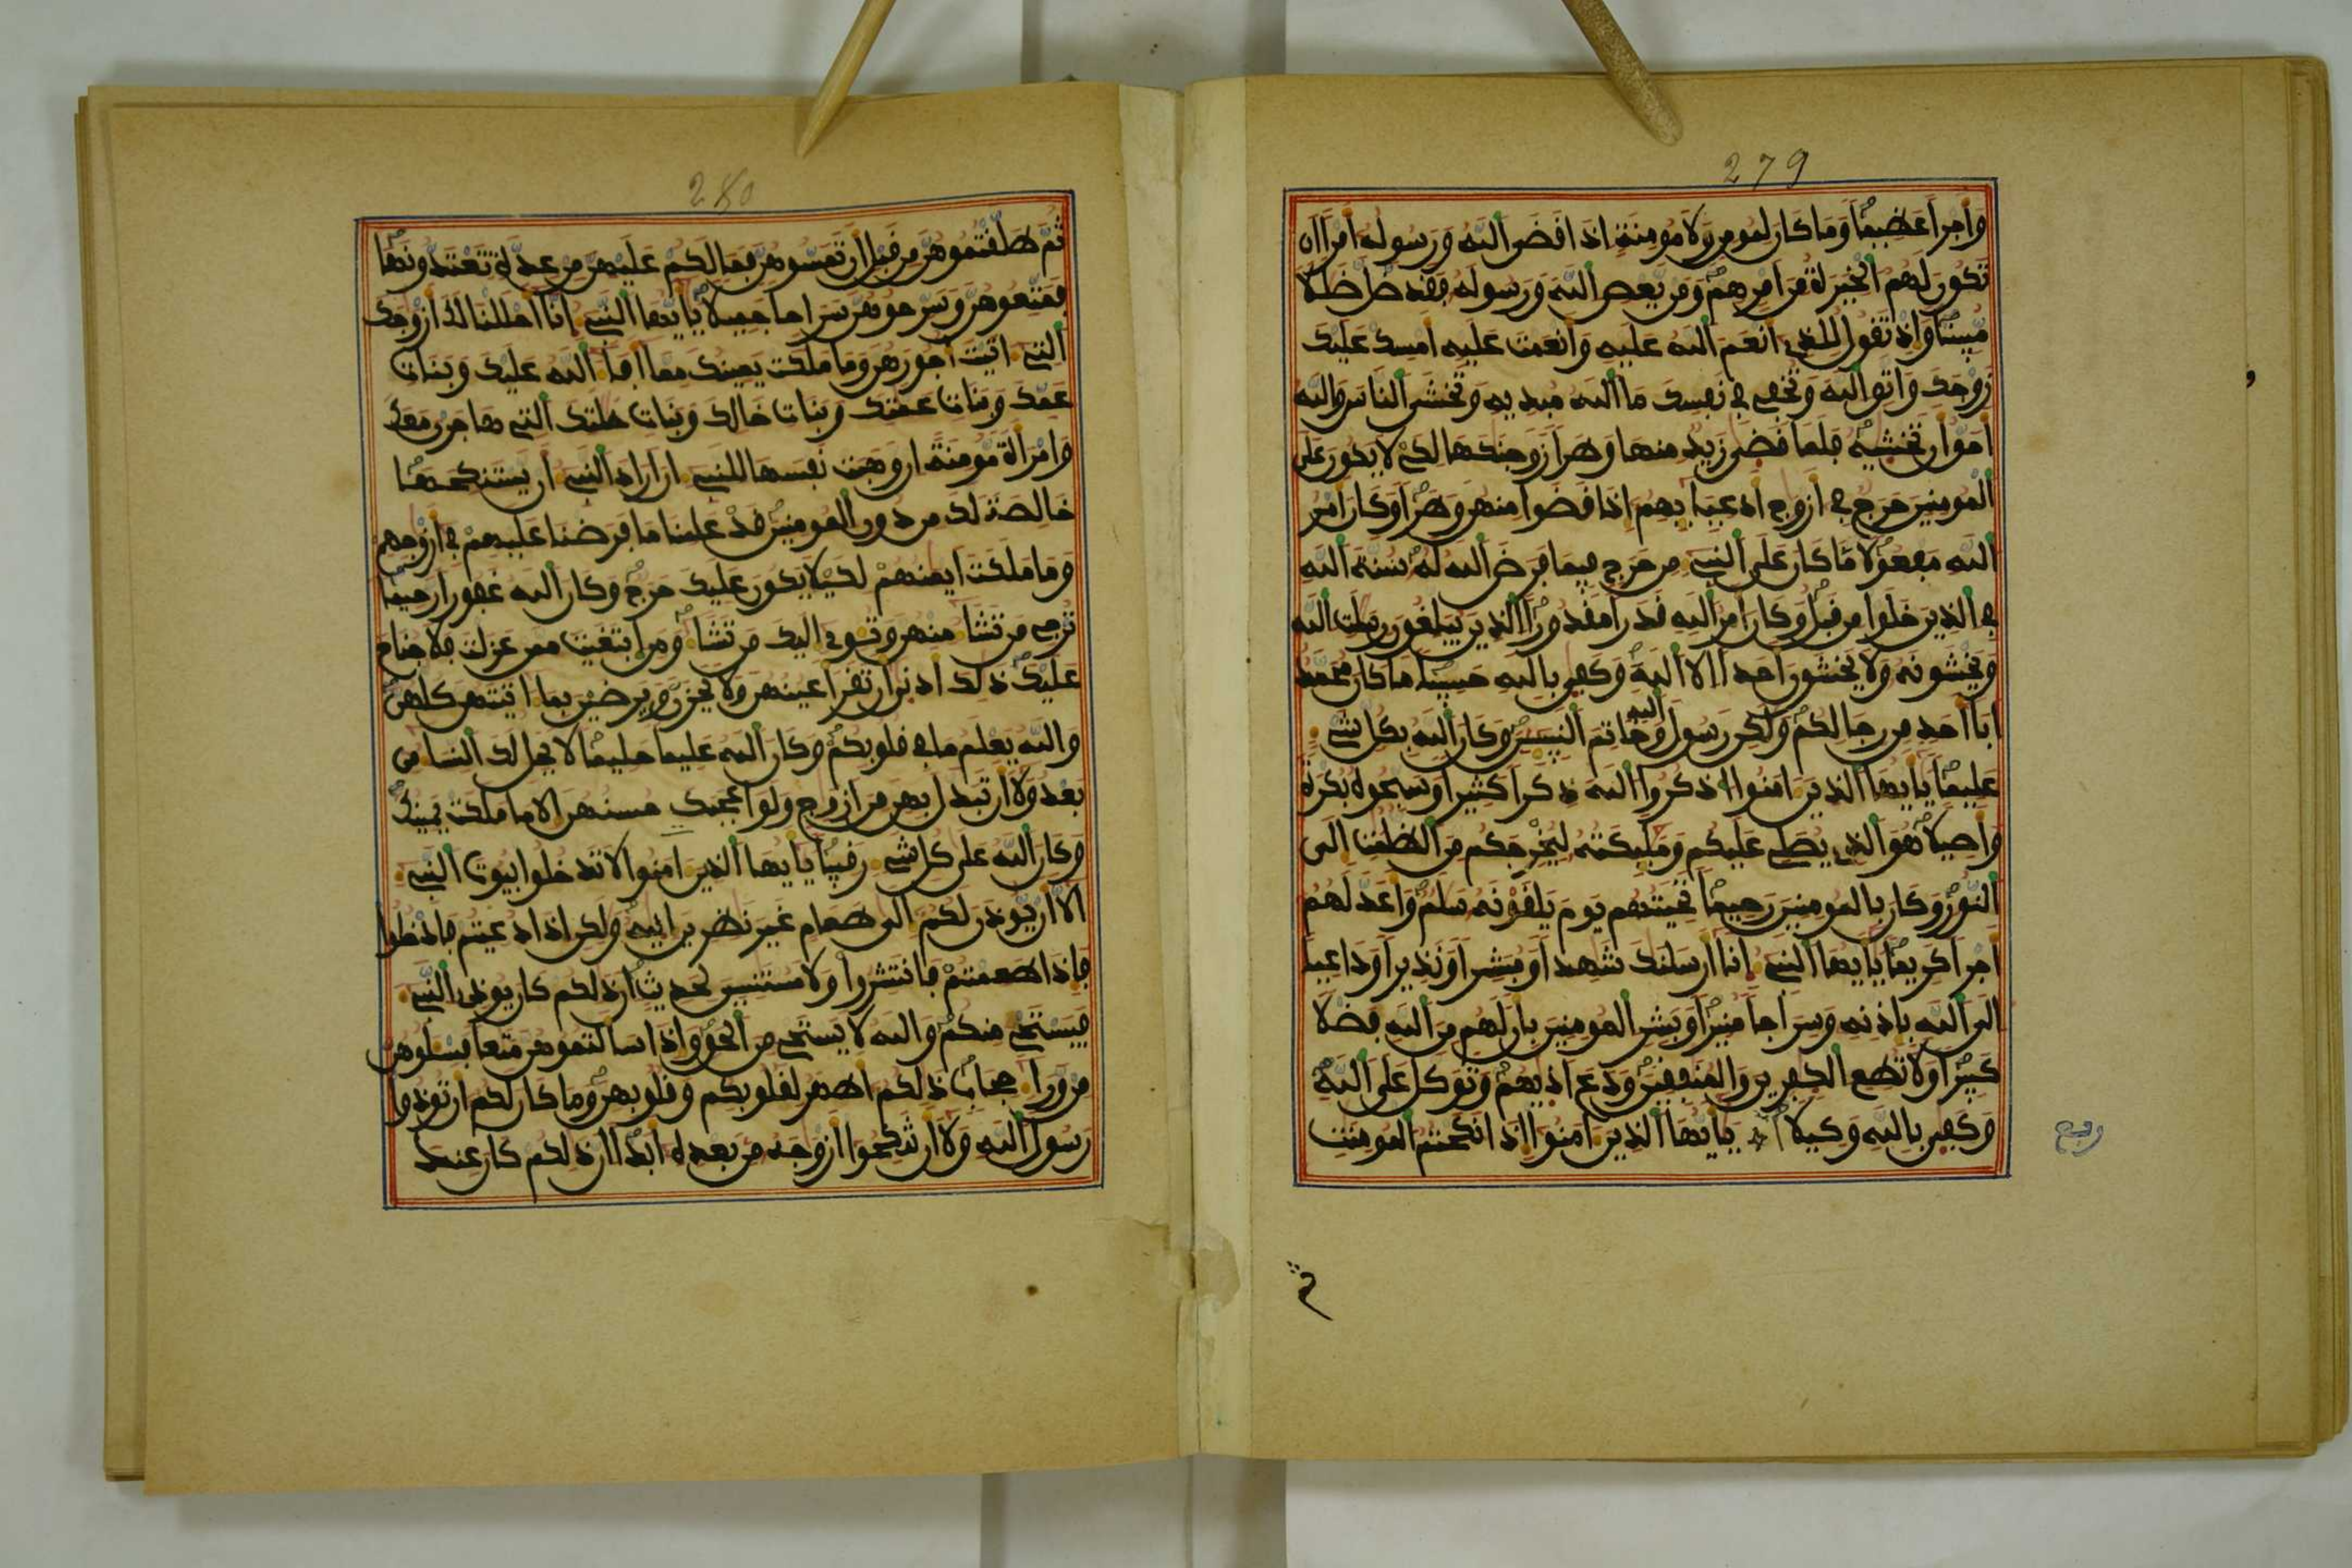 279
واجرا عظيما وما كان لمومن ولا مومنة اذا قضى الله ورسوله امرا ان
تكون لهم الخيرة من امرهم ومن يعص الله ورسوله فقد ضل ضللا
مبينا واذ تقول للذي انعم الله عليه وانعمت عليه امسك عليك
زوجك واتق الله وتخفي في نفسك ما الله مبديه وتخشى الناس والله
احق ان تخشيه فلما قضى زيد منها وطرا زوجنكها لكي لا يكون على
المومنين حرج في ازوج ادعيايهم اذا قضوا منهن وطرا وكان امر
الله مفعولا ما كان على النبي من حرج فيما فرض الله له سنة الله
في الذين خلوا من قبل وكان امر الله قدرا مقدورا الذين يبلغون رسلت الله
ويخشونه ولا يخشون احدا الا الله وكفى بالله حسيبا ما كان محمد
ابا احد من رجالكم ولكن رسول الله وخاتم النبيين وكان الله بكل شي
عليما يايها الذين امنوا اذكروا الله ذكرا كثيرا وسبحوه بكرة
واصيلا هو الذي يصلي عليكم ومليكته ليخرجكم من الظلمت الى
النور وكان بالمومنين رحيما تحيتهم يوم يلقونه سلم واعد لهم
اجرا كريما يايها النبي انا ارسلنك شهدا ومبشرا ونذيرا وداعيا
الى الله باذنه وسراجا منيرا وبشر المومنين بان لهم من الله فضلا
كبيرا ولا تطع الكفرين والمنفقين ودع اذيهم وتوكل على الله
وكفى بالله وكيلا يايها الذين امنوا اذا نكحتم المومنت
ربع
ثم
280
ثم طلقتموهن من قبل ان تمسوهن فما لكم عليهن من عدة تعتدونها
فمتعوهن وسرحوهن سراحا جميلا يايها النبي انا احللنا لك ازوجك
التي اتيت اجورهن وما ملكت يمينك مما افا الله عليك وبنات
عمك وبنات عمتك وبنات خالك وبنات خلتك التي هاجرن معك
وامراة مومنة ان وهبت نفسها للنبي ان اراد النبي ان يستنكحها
خالصة لك من دون المومنين قد علمنا ما فرضنا عليهم في ازوجهم
وما ملكت ايمنهم لكيلا يكون عليك حرج وكان الله غفورا رحيما
ترجي من تشا منهن وتوي اليك من تشا ومن ابتغيت ممن عزلت فلا جناح
عليك ذلك ادنى ان تقر اعينهن ولا يحزن ويرضين بما اتيتهن كلهن
والله يعلم ما في قلوبكم وكان الله عليما حليما لا يحل لك النسا من
بعد ولا ان تبدل بهن من ازوج ولو اعجبك حسنهن الا ما ملكت يمينك
وكان الله على كل شي رقيبا يايها الذين امنوا لا تدخلوا بيوت النبي
الا ان يوذن لكم الى طعام غير نظرين انيه ولكن اذا دعيتم فادخلوا
فاذا طعمتم فانتشروا ولا مستنسين لحديث ان ذلكم كان يوذي النبي
فيستحي منكم والله لا يستحي من الحق واذا سالتموهن متعا فسلوهن
من ورا حجاب ذلكم اطهر لقلوبكم وقلوبهن وما كان لكم ان توذوا
رسول الله ولا ان تنكحوا ازوجه من بعده ابدا ان ذلكم كان عند